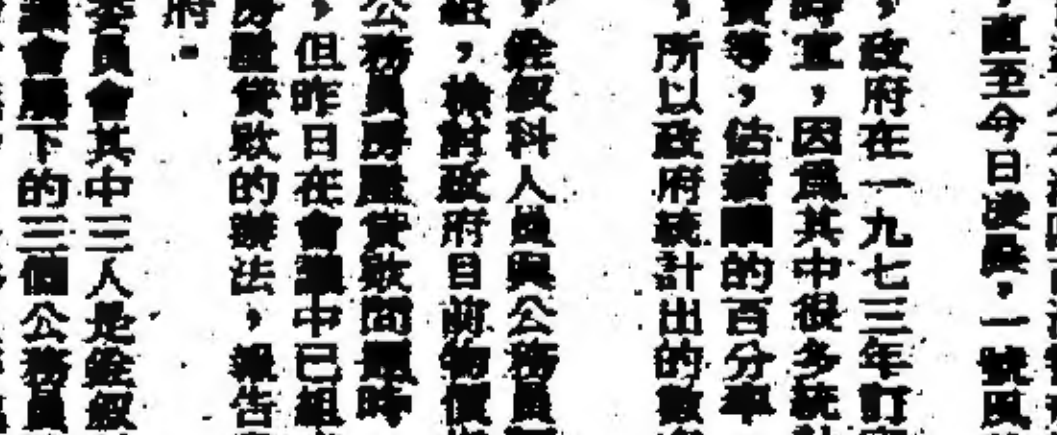 ，直至今日凌晨，一號風
，政府在一九七三年訂
時宜，因爲其中很多統計
費等，估薪
的百分率
，所以政府統計出的數
，銓叙科人員與公務員
組，檢討政府目前物價
公務員房屋貸欵問題時
，但昨日在會議中已組
房屋貸欵的辦法，報告
府。
委員會其中三人是銓叙
會屬下的三個公務員